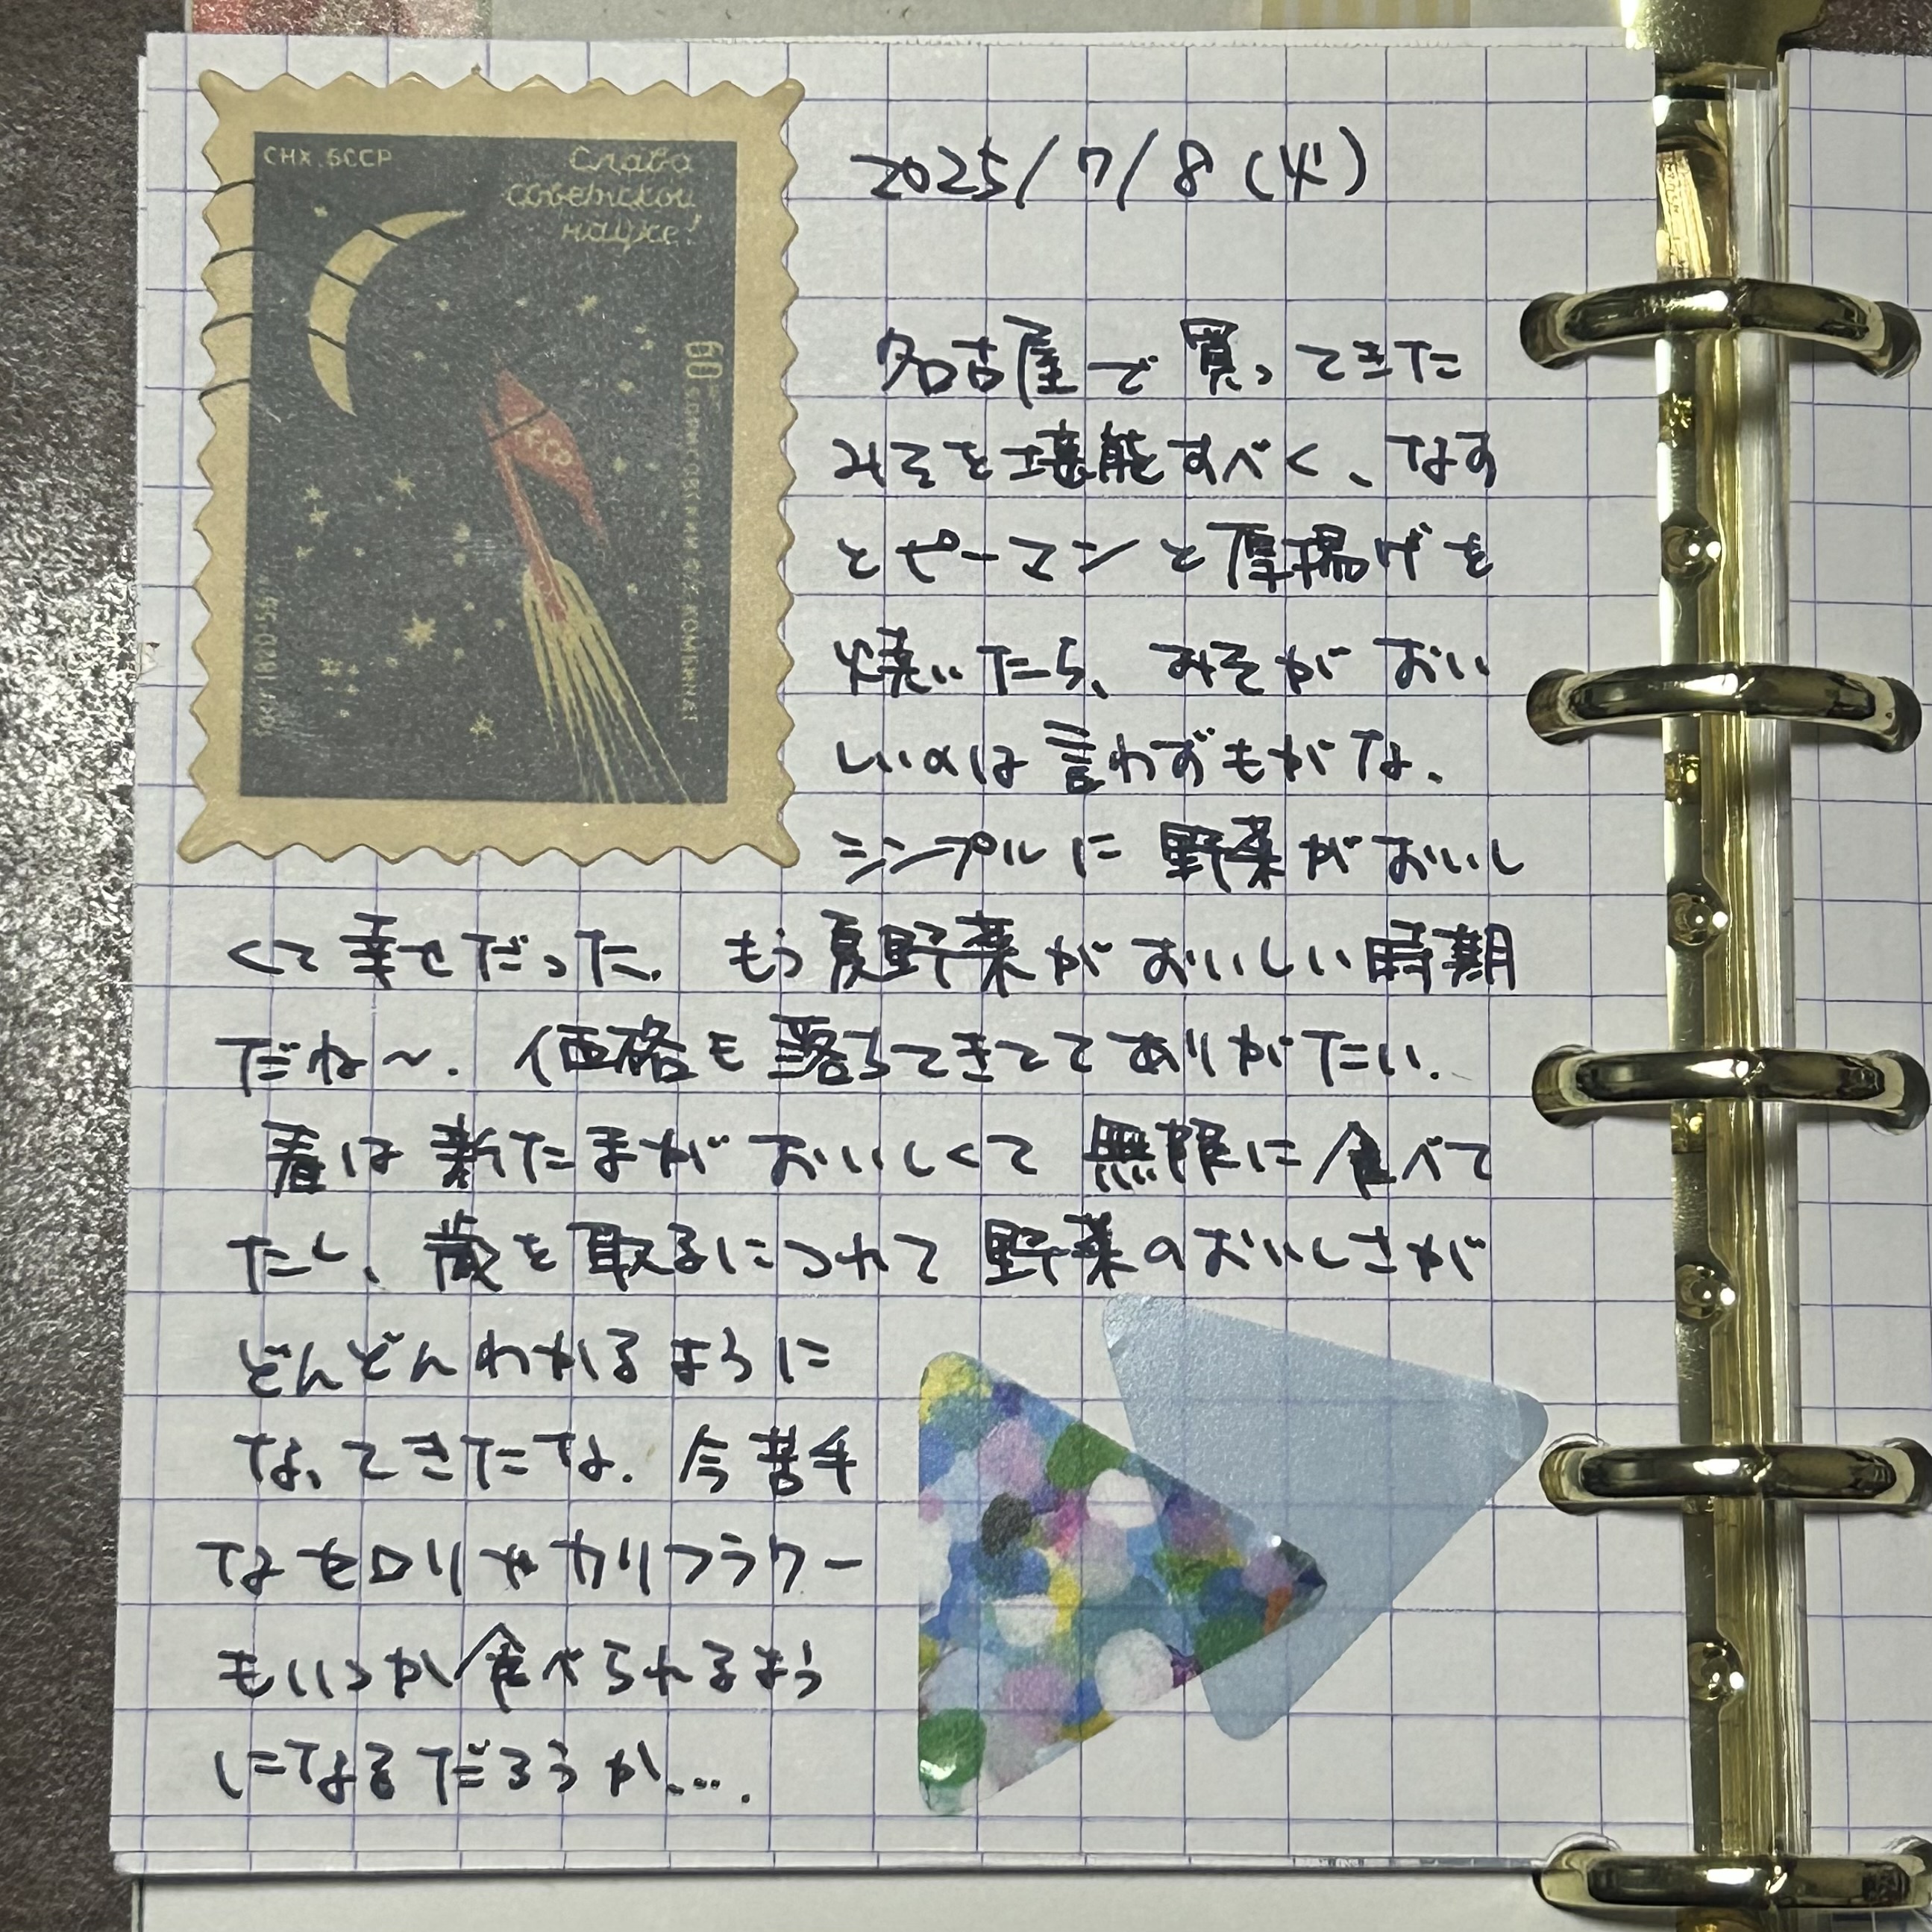 СНХ. БССР
Слава
советской
науке!
60
СССР
2025/7/8(火)
名古屋で買ってきた
みそを堪能すべく、なす
とピーマンと厚揚げを
焼いたら、みそがおい
しいのは言わずもがな、
シンプルに野菜がおいし
くて幸せだった。もう夏野菜がおいしい時期
だね〜。価格も落ちてきててありがたい。
春は新たまがおいしくて無限に食べて
たし、歳を取るにつれて野菜のおいしさが
どんどんわかるように
なってきたな。今苦手
なセロリやカリフラワー
もいつか食べられるよう
になるだろうか…。